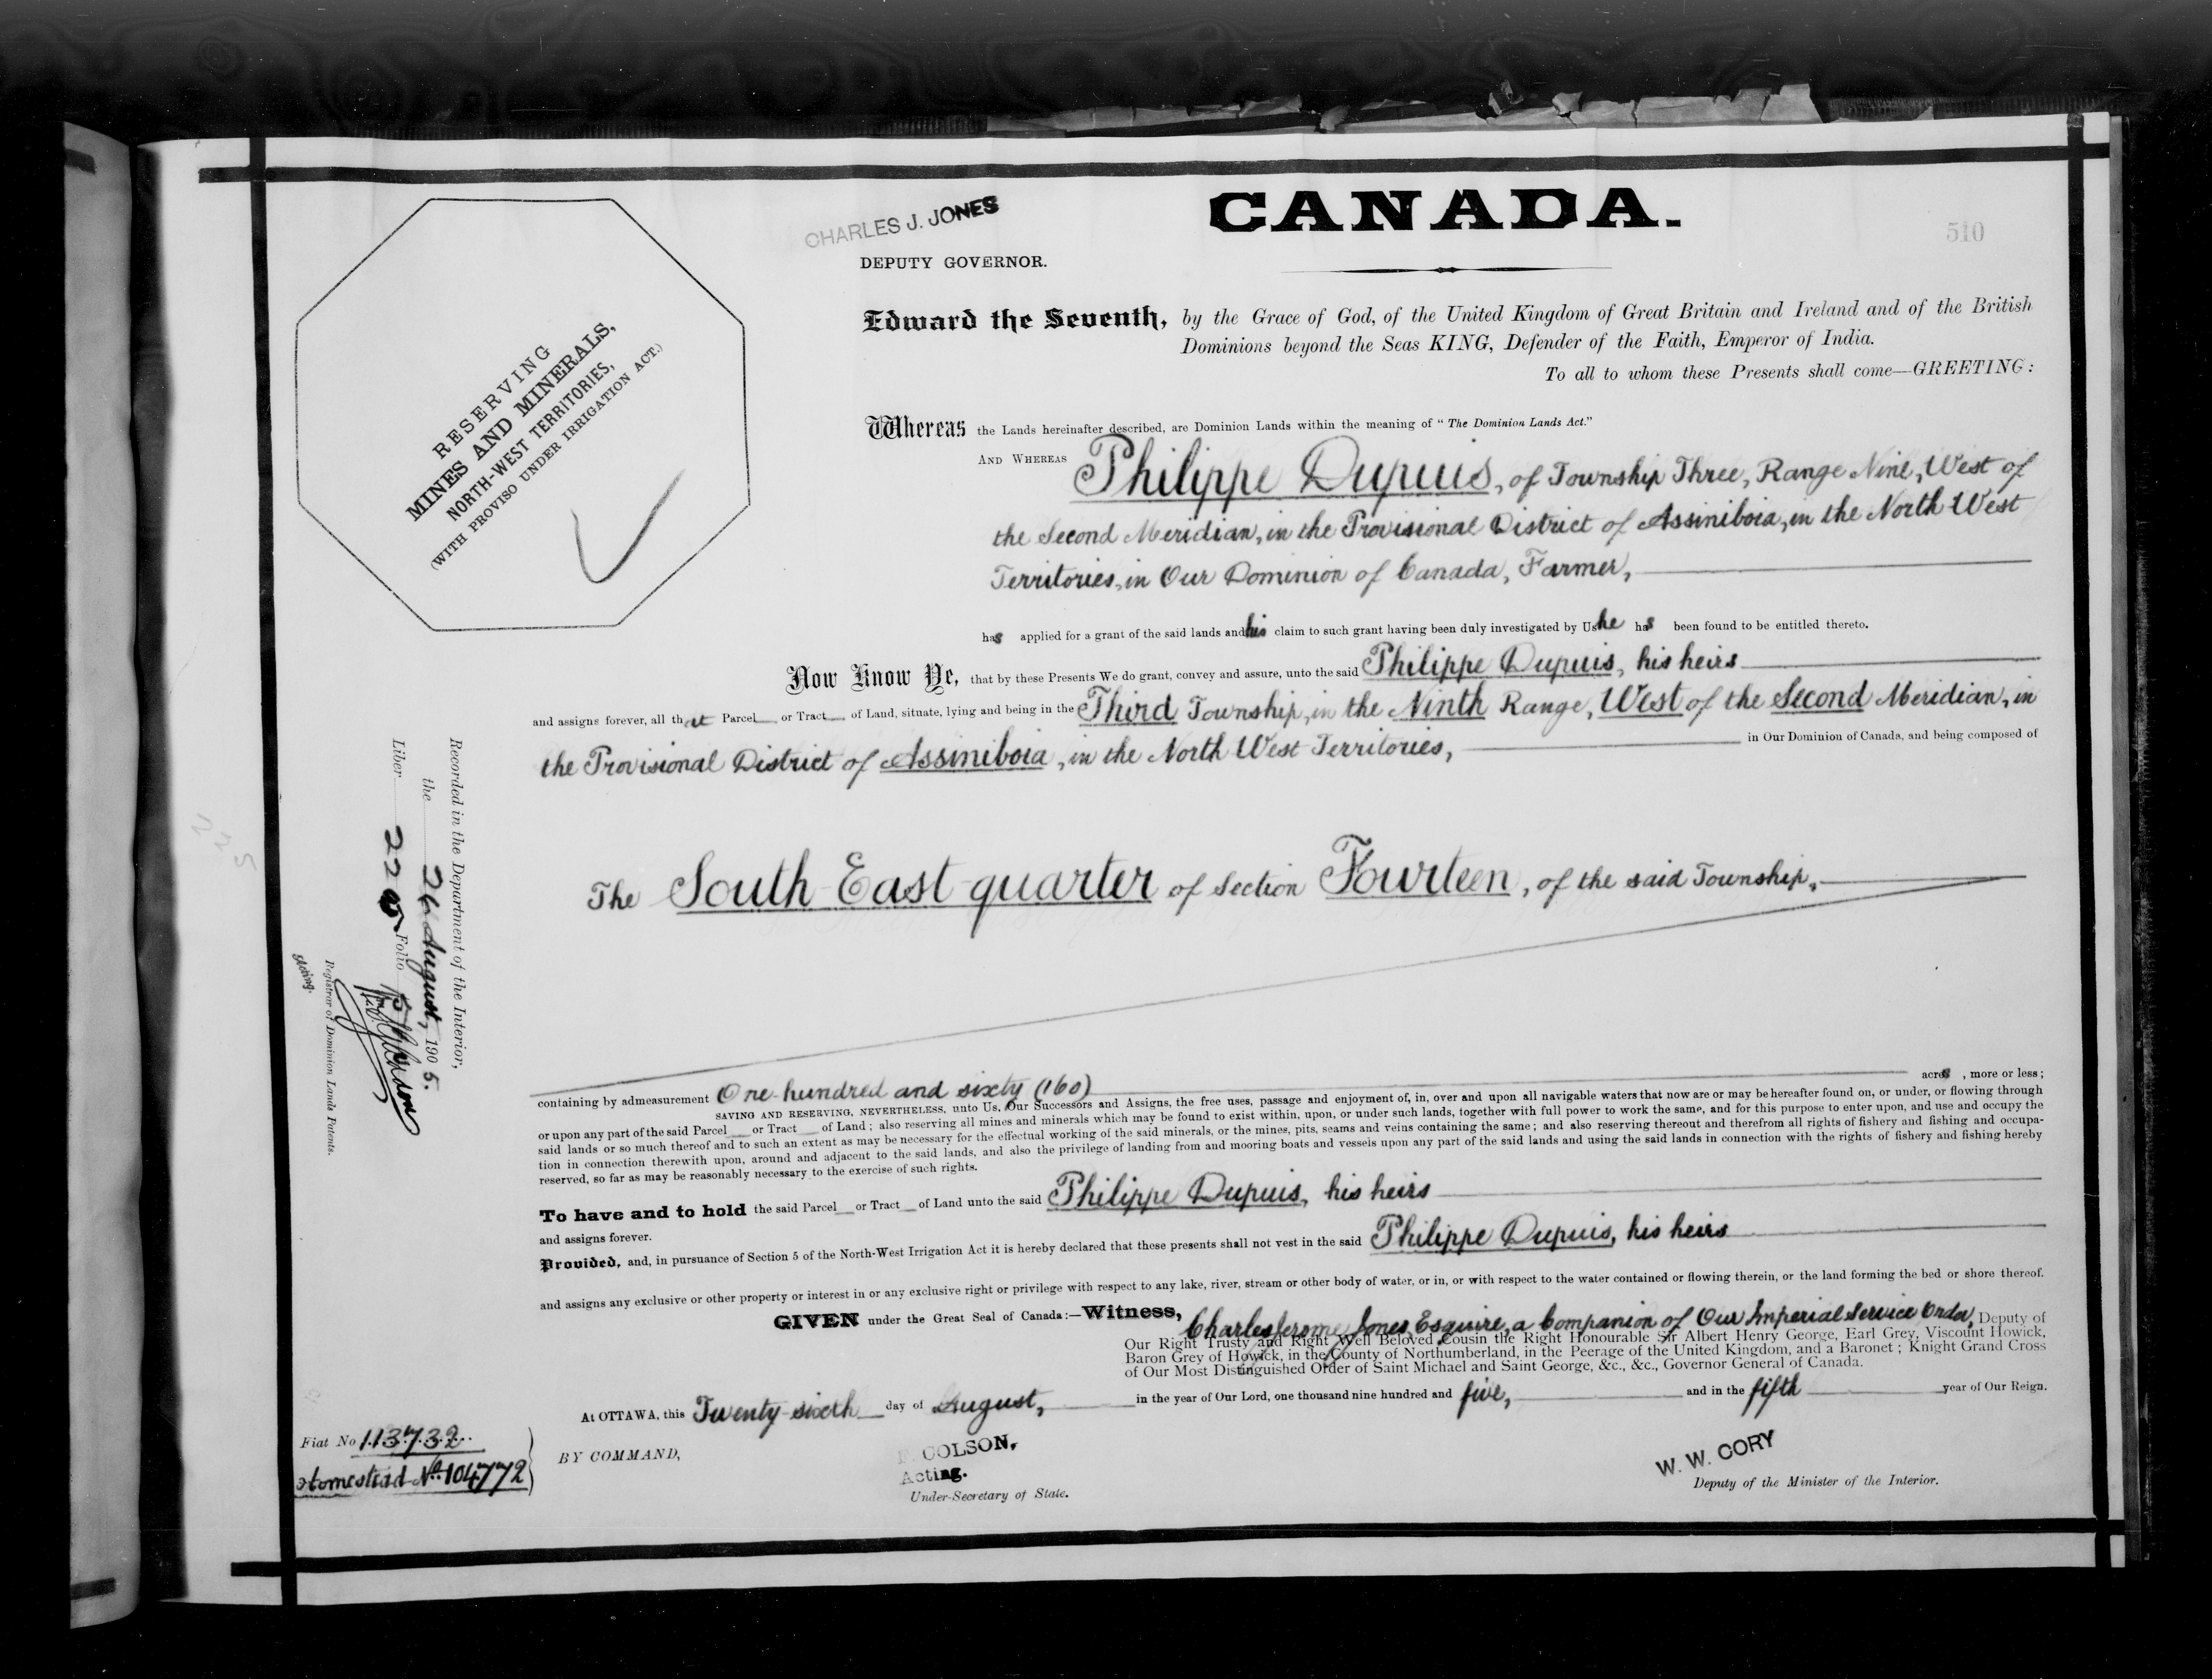 CHARLES J. JONES
CANADA.
510
DEPUTY GOVERNOR.
RESERVING
MINES AND MINERALS,
NORTH-WEST TERRITORIES,
(WITH PROVISO UNDER IRRIGATION ACT.)
Edward the Seventh, by the Grace of God, of the United Kingdom of Great Britain and Ireland and of the British
Dominions beyond the Seas KING, Defender of the Faith, Emperor of India.
To all to whom these Presents shall come—GREETING:
Whereas the Lands hereinafter described, are Dominion Lands within the meaning of "The Dominion Lands Act."
AND WHEREAS Philippe Dupuis, of Township Three, Range Nine, West of
the Second Meridian, in the Provisional District of Assiniboia, in the North West
Territories, in Our Dominion of Canada, Farmer,
has applied for a grant of the said lands and his claim to such grant having been duly investigated by Us he has been found to be entitled thereto.
Now Know Ye, that by these Presents We do grant, convey and assure, unto the said Philippe Dupuis, his heirs
and assigns forever, all that Parcel or Tract of Land, situate, lying and being in the Third Township, in the Ninth Range, West of the Second Meridian, in
the Provisional District of Assiniboia, in the North West Territories, in Our Dominion of Canada, and being composed of
The South East quarter of Section Fourteen, of the said Township,
containing by admeasurement One hundred and sixty (160) acres, more or less;
SAVING AND RESERVING, NEVERTHELESS, unto Us, Our Successors and Assigns, the free uses, passage and enjoyment of, in, over and upon all navigable waters that now are or may be hereafter found on, or under, or flowing through
or upon any part of the said Parcel or Tract of Land; also reserving all mines and minerals which may be found to exist within, upon, or under such lands, together with full power to work the same, and for this purpose to enter upon, and use and occupy the
said lands or so much thereof and to such an extent as may be necessary for the effectual working of the said minerals, or the mines, pits, seams and veins containing the same; and also reserving thereout and therefrom all rights of fishery and fishing and occupa-
tion in connection therewith upon, around and adjacent to the said lands, and also the privilege of landing from and mooring boats and vessels upon any part of the said lands and using the said lands in connection with the rights of fishery and fishing hereby
reserved, so far as may be reasonably necessary to the exercise of such rights.
To have and to hold the said Parcel or Tract of Land unto the said Philippe Dupuis, his heirs
and assigns forever.
Provided, and, in pursuance of Section 5 of the North-West Irrigation Act it is hereby declared that these presents shall not vest in the said Philippe Dupuis, his heirs
and assigns any exclusive or other property or interest in or any exclusive right or privilege with respect to any lake, river, stream or other body of water, or in, or with respect to the water contained or flowing therein, or the land forming the bed or shore thereof.
GIVEN under the Great Seal of Canada:—Witness, Charles Jerome Jones, Esquire, a Companion of Our Imperial Service Order, Deputy of
Our Right Trusty and Right Well Beloved Cousin the Right Honourable Sir Albert Henry George, Earl Grey, Viscount Howick,
Baron Grey of Howick, in the County of Northumberland, in the Peerage of the United Kingdom, and a Baronet; Knight Grand Cross
of Our Most Distinguished Order of Saint Michael and Saint George, &c., &c., Governor General of Canada.
At OTTAWA, this Twenty-sixth day of August, in the year of Our Lord, one thousand nine hundred and five, and in the fifth year of Our Reign.
BY COMMAND,
COLSON,
Acting.
Under-Secretary of State.
W. W. CORY
Deputy of the Minister of the Interior.
Fiat No 113732
Homestead No. 104772
Recorded in the Department of the Interior,
the 26 August, 1905.
Liber 220 Folio
Registrar of Dominion Lands Patents.
Acting.